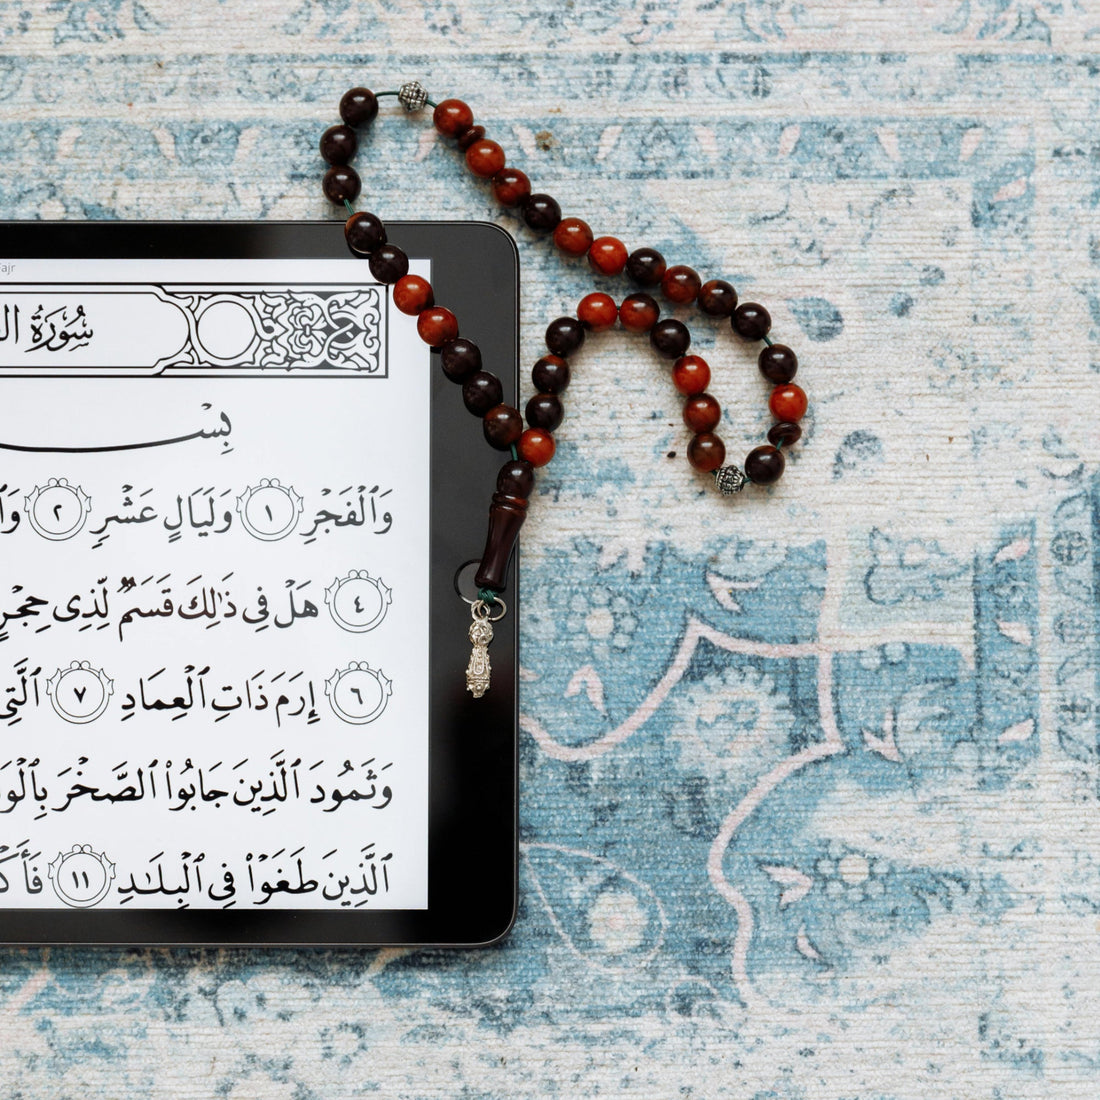 Fajr
سُورَةُ
بِسْـ
وَٱلْفَجْرِ ١ وَلَيَالٍ عَشْرٍ ٢
٤ هَلْ فِى ذَٰلِكَ قَسَمٌ لِّذِى حِجْرٍ
٦ إِرَمَ ذَاتِ ٱلْعِمَادِ ٧ ٱلَّتِى
وَثَمُودَ ٱلَّذِينَ جَابُوا۟ ٱلصَّخْرَ
ٱلَّذِينَ طَغَوْا۟ فِى ٱلْبِلَـٰدِ ١١